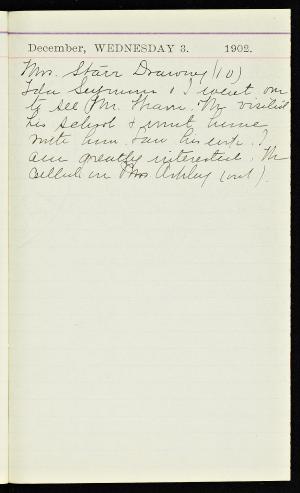 December, WEDNESDAY 3. 1902.
Mrs. Starr Drawing (10)
Ida Seymour & I went over
to see Mr. Tham. We visited
his school & went home
with him. Saw his wife. I
am greatly interested. We
called on Mrs Ashley (out).